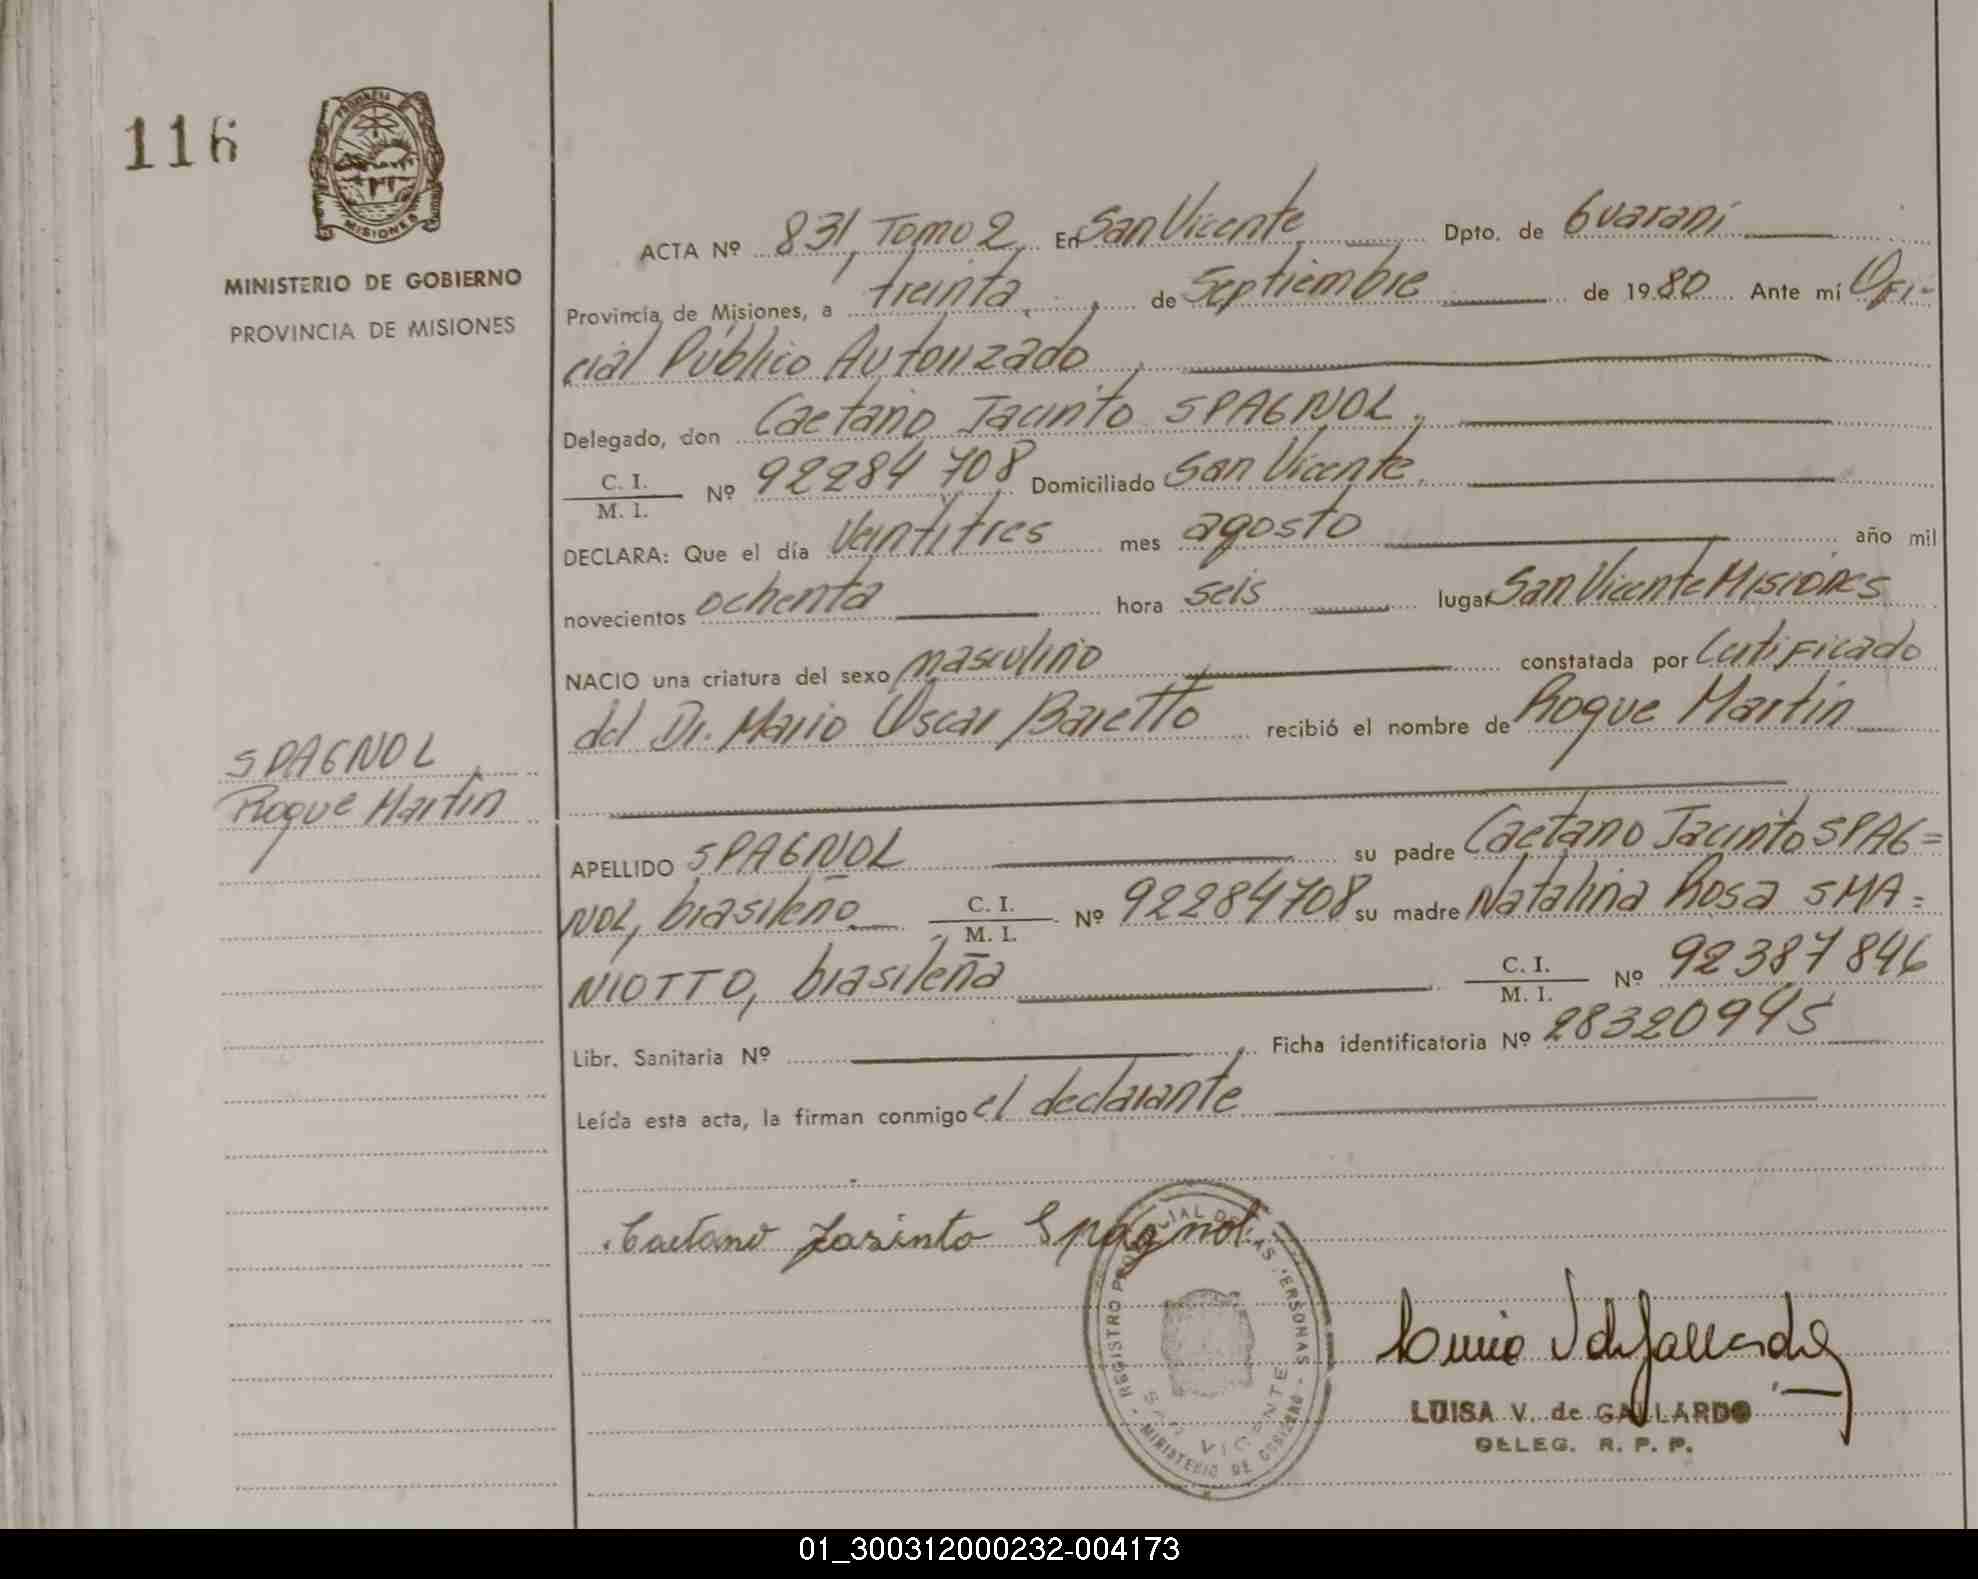 116
PROVINCIA
MISIONES
MINISTERIO DE GOBIERNO
PROVINCIA DE MISIONES
ACTA Nº 831, Tomo 2, En San Vicente Dpto. de Guaraní
Provincia de Misiones, a treinta, de Septiembre de 1980 Ante mí Ofi-
cial Público Autorizado,
Delegado, don Caetano Jacinto SPAGNOL,
C. I.
M. I. Nº 92284708 Domiciliado San Vicente,
DECLARA: Que el día Veintitres mes agosto año mil
novecientos ochenta hora seis lugar San Vicente Misiones
NACIO una criatura del sexo masculino constatada por Certificado
del Dr. Mario Oscar Baretto recibió el nombre de Roque Martin
SPAGNOL
Roque Martin
APELLIDO SPAGNOL su padre Caetano Jacinto SPAG=
NOL, brasileño C. I. M. I. Nº 92284708 su madre Natalina Rosa SMA=
NIOTTO, brasileña C. I. M. I. Nº 92387846
Libr. Sanitaria Nº Ficha identificatoria Nº 28320945
Leída esta acta, la firman conmigo el declarante
Caetano Jasinto Spagnol
REGISTRO PROVINCIAL DE LAS PERSONAS
SAN VICENTE
MINISTERIO DE GOBIERNO
LUISA V. de GALLARDO
DELEG. R. P. P.
01_300312000232-004173